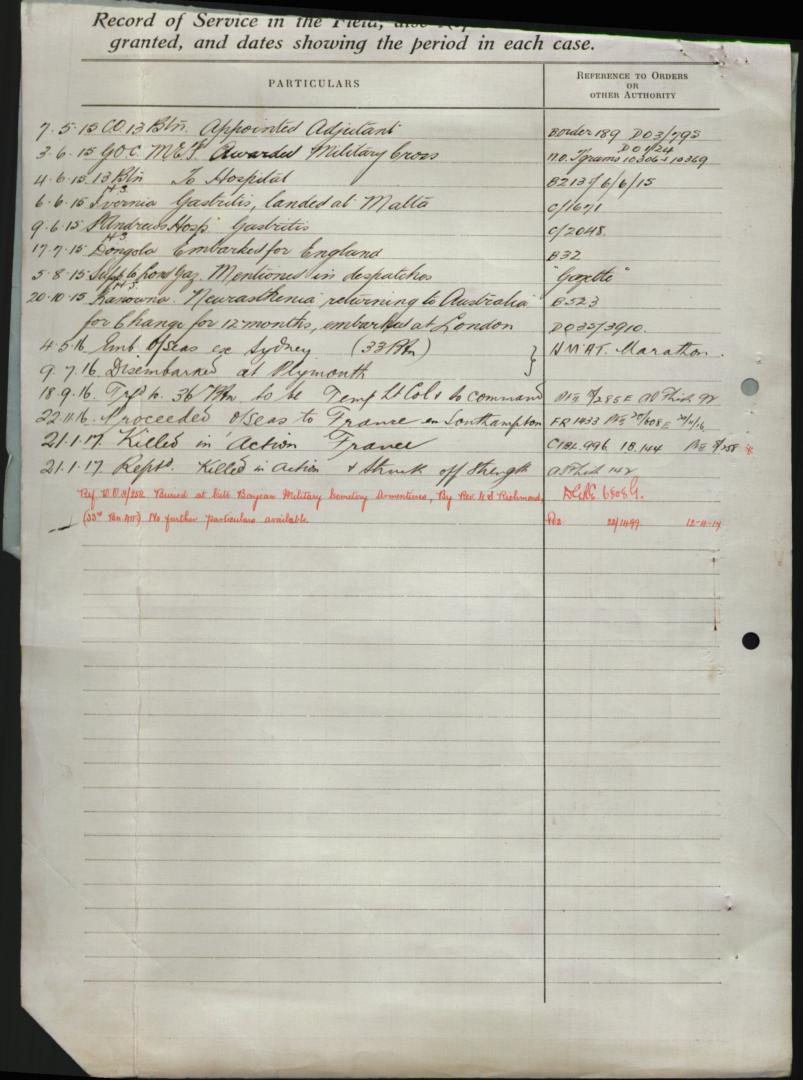 Record of Service in the Field,
granted, and dates showing the period in each case.
PARTICULARS
REFERENCE TO ORDERS
OR
OTHER AUTHORITY
7.5.15 CO. 13 Btn. Appointed Adjutant Border 189 DO3/795
3.6.15 GOC. M.E.F. Awarded Military Cross DO 1/24
4.6.15 13 Btn To Hospital B2137 6/6/15
6.6.15 H.S. Ivernia Gastritis, landed at Malta C/1671
9.6.15 St Andrews Hosp. Gastritis C/2048
17.7.15 H.S. Dongola Embarked for England B32
5.8.15 Gaz. Mentioned in despatches "Gazette"
20.10.15 H.S. Kanowna. Neurasthenia returning to Australia B523
for Change for 12 months, embarked at London DO35/3910.
4.5.16 Emb. O/seas ex Sydney (33 Btn) } H.M.A.T. Marathon.
9.7.16 Disembarked at Plymouth
18.9.16. to 36 Btn to be Temp Lt Col & to command
22.11.16. Proceeded O/seas to France ex Southampton FR 1433
21.1.17 Killed in Action France 18.144
21.1.17 Reptd. Killed in Action & Struck off Strength 142
Buried at Military Cemetery Armentieres, By Rev. Richmond,
(33rd Bn AIF) No further particulars available. 22/1499 12-4-17